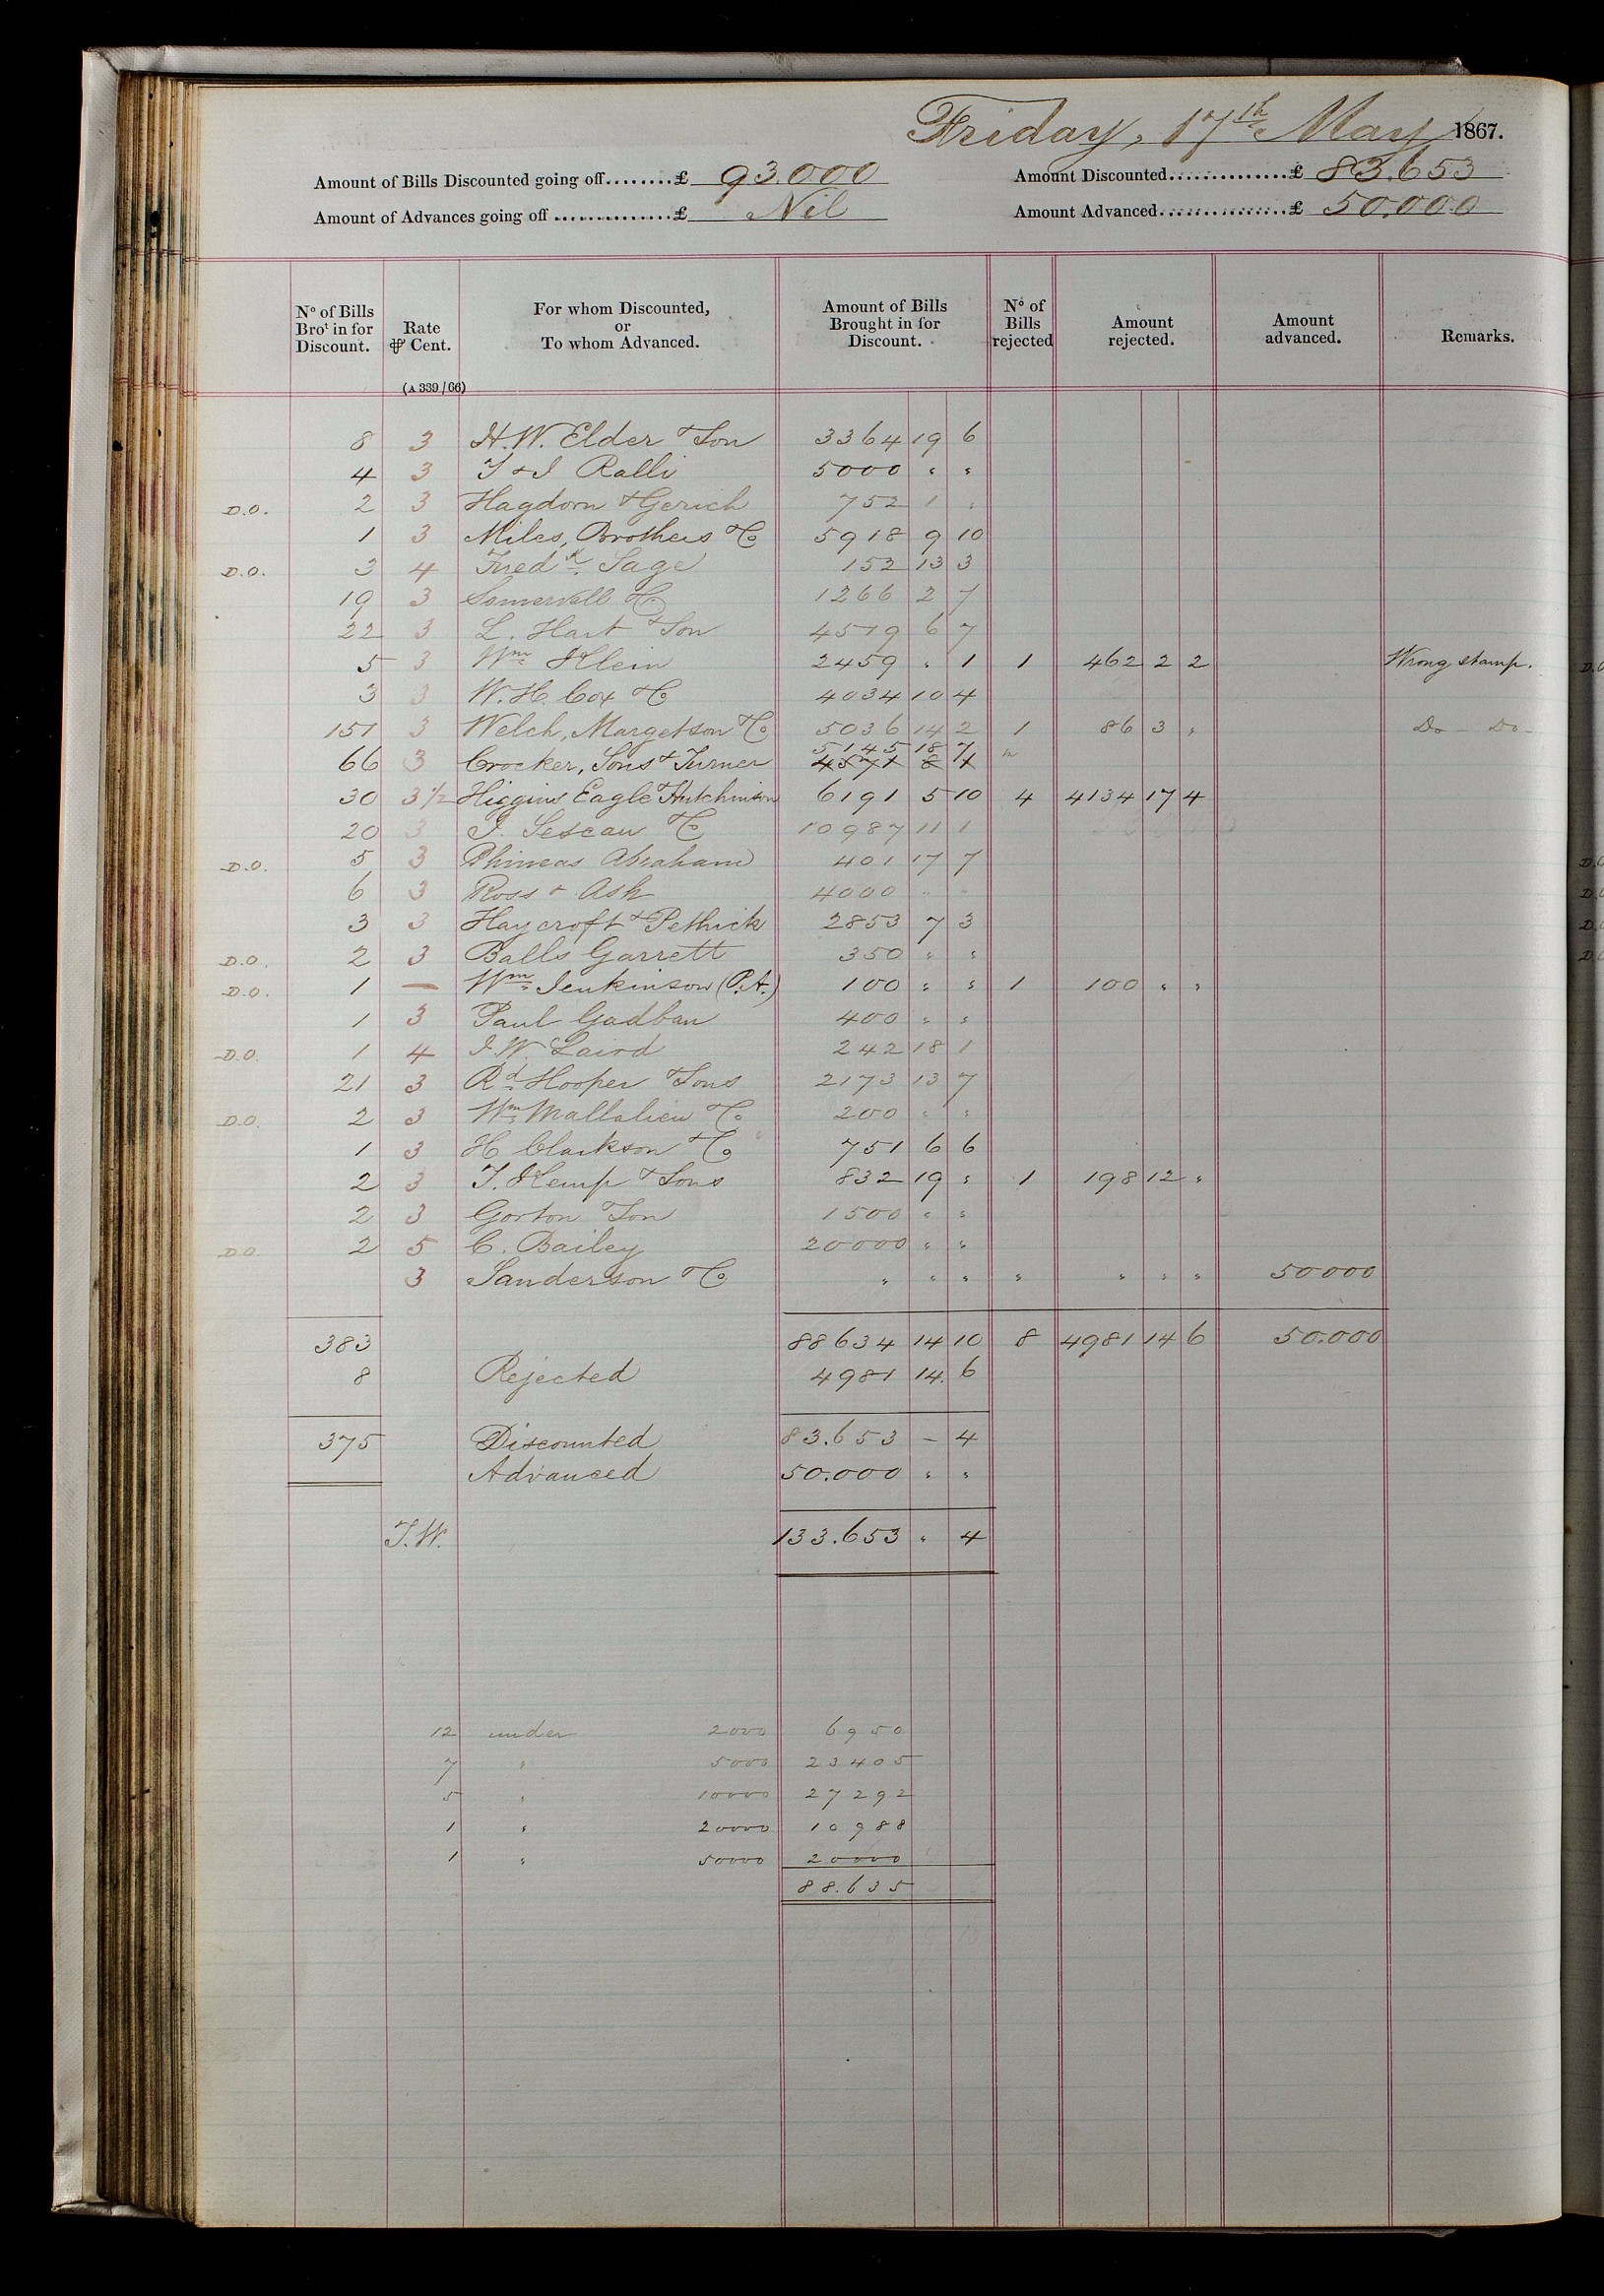 Friday, 17th May 1867.
Amount of Bills Discounted going off........£ 93.000 Amount Discounted..............£ 83.653
Amount of Advances going off ..............£ Nil Amount Advanced...............£ 50.000
No of Bills Brot in for Discount. Rate ⅌ Cent. (A 339/66) For whom Discounted, or To whom Advanced. Amount of Bills Brought in for Discount. No of Bills rejected Amount rejected. Amount advanced. Remarks.
8 3 H.W. Elder & Son 3364 19 6
4 3 T & J Ralli 5000 " "
D.O. 2 3 Hagdorn & Gerich 752 1 "
1 3 Miles, Brothers & Co 5918 9 10
D.O. 3 4 Fredk Sage 152 13 3
19 3 Somervell & Co 1266 2 7
22 3 L. Hart & Son 4519 6 7
5 3 Wm Klein 2459 " 1 1 462 2 2 Wrong stamp.
3 3 W.H. Cox & Co 4034 10 4
151 3 Welch, Margetson & Co 5036 14 2 1 86 3 " Do - Do -
66 3 Crocker, Sons & Turner 5145 18 7
30 3 1/2 Higgins Eagle & Hutchinson 6191 5 10 4 4134 17 4
20 3 J. Lescau & Co 10987 11 1
D.O. 5 3 Phineas Abraham 401 17 7
6 3 Ross & Ash 4000 " "
3 3 Haycroft & Pethick 2853 7 3
D.O. 2 3 Balls Garrett 350 " "
D.O. 1 — Wm Jenkinson (P.A.) 100 " " 1 100 " "
1 3 Paul Gadban 400 " "
D.O. 1 4 J.W. Laird 242 18 1
21 3 Rd Hooper & Sons 2173 13 7
D.O. 2 3 Wm Mallalieu & Co 200 " "
1 3 H Clarkson & Co 751 6 6
2 3 T. Kemp & Sons 832 19 " 1 198 12 "
2 3 Gorton & Son 1500 " "
D.O. 2 5 C. Bailey 20000 " "
3 Sanderson & Co " " " " " " " 50000
383 88634 14 10 8 4981 14 6 50.000
8 Rejected 4981 14. 6
375 Discounted 83.653 - 4
Advanced 50.000 " "
T.W. 133.653 " 4
12 under 2000 6950
7 " 5000 23405
5 " 10000 27292
1 " 20000 10988
1 " 50000 20000
88.635